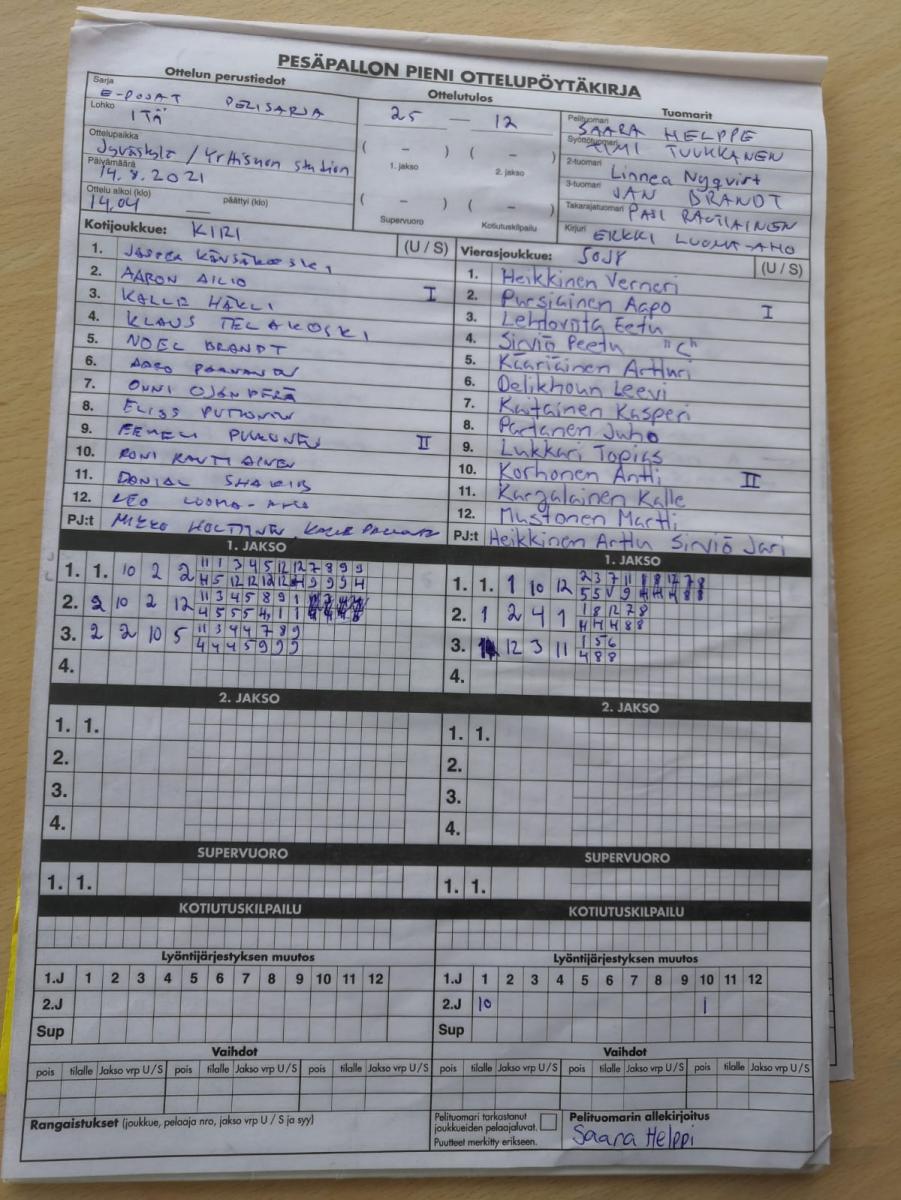 PESÄPALLON PIENI OTTELUPÖYTÄKIRJA
Ottelun perustiedot
Ottelutulos
Tuomarit
Sarja
E-POJAT PELISARJA
Lohko
ITÄ
Ottelupaikka
Jyväskylä /
Päivämäärä
14.8.2021
Ottelu alkoi (klo) päättyi (klo)
14.04
25 – 12
( – ) ( – )
1. jakso 2. jakso
( – ) ( – )
Supervuoro Kotiutuskilpailu
Pelituomari
SAARA HELPPE
Syöttötuomari
TUUKKANEN
2-tuomari
Linnea Nyqvist
3-tuomari
JAN BRANDT
Takarajatuomari
PASI RAUTIAINEN
Kirjuri
ERKKI LUOMA-AHO
Kotijoukkue: KIRI (U / S)
1. KÄNSÄKOSKI
2. AARON AILIO I
3. KALLE HÄKLI
4. KLAUS TELAKOSKI
5. NOEL BRANDT
6.
7. ONNI OJANPERÄ
8. ELIAS PUTKONEN
9. EEMELI II
10. RONI RAUTIAINEN
11. DANIAL
12. LEO LUOMA-AHO
PJ:t MIKKO
Vierasjoukkue: SOJY (U / S)
1. Heikkinen Verneri
2. Pursiainen Aapo I
3. Lehtovirta Eetu
4. Sirviö Peetu "C"
5. Kääriäinen Artturi
6. Delikhoun Leevi
7. Kaitainen Kasperi
8. Partanen Juho
9. Lukkari Topias
10. Korhonen Antti II
11. Karjalainen Kalle
12. Mustonen Martti
PJ:t Heikkinen Arttu Sirviö Jari
1. JAKSO
1. 1. 10 2 2 11 1 3 4 5 12 12 7 8 9 9
2. 2 10 2 12 11 3 4 5 8 9 1
4 5 5 5 4 1 1
3. 2 2 10 5 11 3 4 4 7 8 9
4 4 4 5 9 9 9
4.
1. JAKSO
1. 1. 1 10 12 2 3 7 11 8 8 12 7 8
2. 1 2 4 1 1 8 12 7 8
4 4 4 8 8
3. 12 3 11 1 5 6
4 8 8
4.
2. JAKSO
1. 1.
2.
3.
4.
2. JAKSO
1. 1.
2.
3.
4.
SUPERVUORO
1. 1.
SUPERVUORO
1. 1.
KOTIUTUSKILPAILU
KOTIUTUSKILPAILU
Lyöntijärjestyksen muutos
1.J 1 2 3 4 5 6 7 8 9 10 11 12
2.J
Sup
Lyöntijärjestyksen muutos
1.J 1 2 3 4 5 6 7 8 9 10 11 12
2.J 10 1
Sup
Vaihdot
pois tilalle Jakso vrp U / S pois tilalle Jakso vrp U / S pois tilalle Jakso vrp U / S
Vaihdot
pois tilalle Jakso vrp U / S pois tilalle Jakso vrp U / S pois tilalle Jakso vrp U / S
Rangaistukset (joukkue, pelaaja nro, jakso vrp U / S ja syy)
Pelituomari tarkastanut
joukkueiden pelaajaluvat.
Puutteet merkitty erikseen.
Pelituomarin allekirjoitus
Saara Helppi